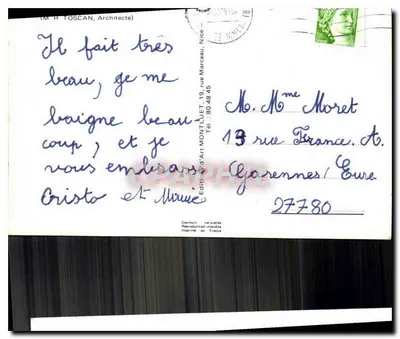 (M. H. TOSCAN, Architecte)
Il fait très
beau, je me
baigne beau-
coup, et je
vous embrasse
Cristo et
Editions d'Art MONTLUET, 19, rue Marceau, Nice
Tél : 80 48 45
M. Mme Moret
13 rue France. A.
Garennes/Eure
27780
Couleurs naturelles
Reproduction interdite
Imprimé en France